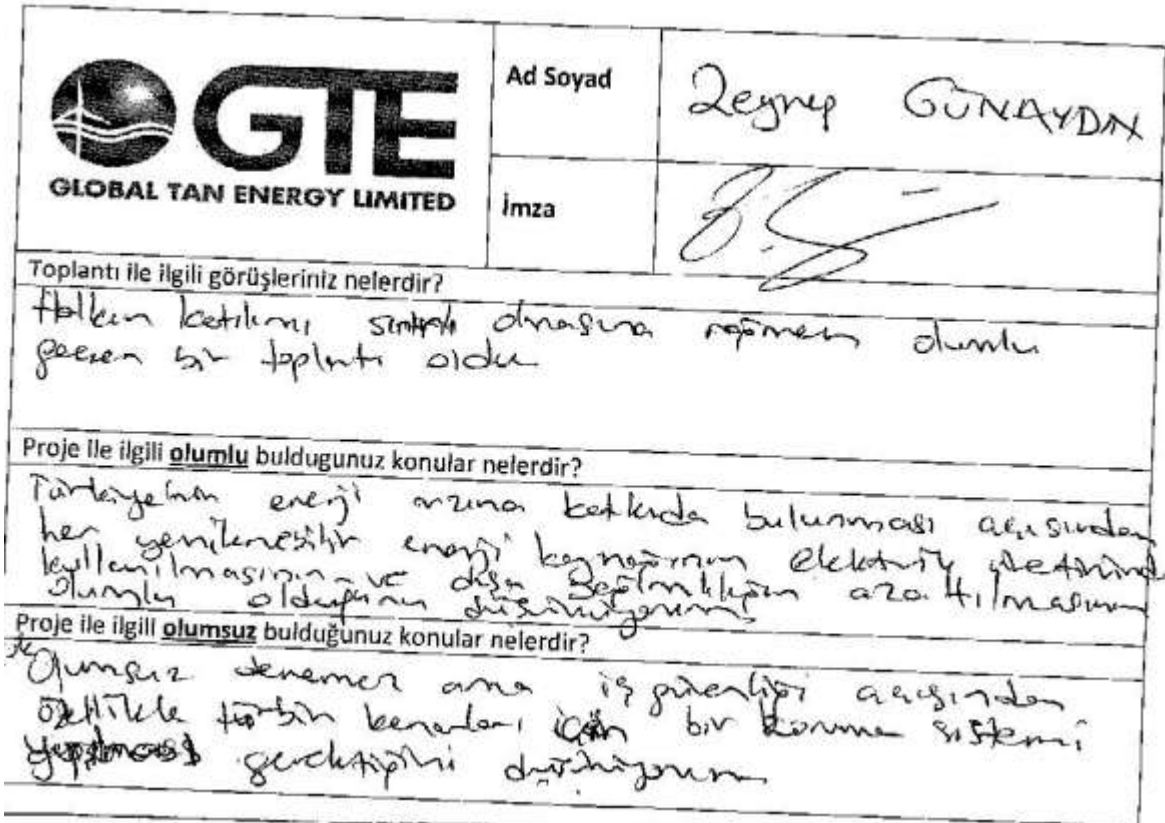 GTE
GLOBAL TAN ENERGY LIMITED
Ad Soyad
Zeynep GÜNAYDIN
İmza
Toplantı ile ilgili görüşleriniz nelerdir?
Halkın katılımı sınırlı olmasına rağmen olumlu
geçen bir toplantı oldu
Proje ile ilgili olumlu buldugunuz konular nelerdir?
Türkiye'nin enerji arzına katkıda bulunması açısından
her yenilenebilir enerji kaynağının elektrik üretiminde
kullanılmasının ve dışa bağımlılığın azaltılmasının
olumlu olduğunu düşünüyorum
Proje ile ilgili olumsuz bulduğunuz konular nelerdir?
Olumsuz denemez ama iş güvenliği açısından
özellikle türbin kenarları için bir koruma sistemi
yapılması gerektiğini düşünüyorum